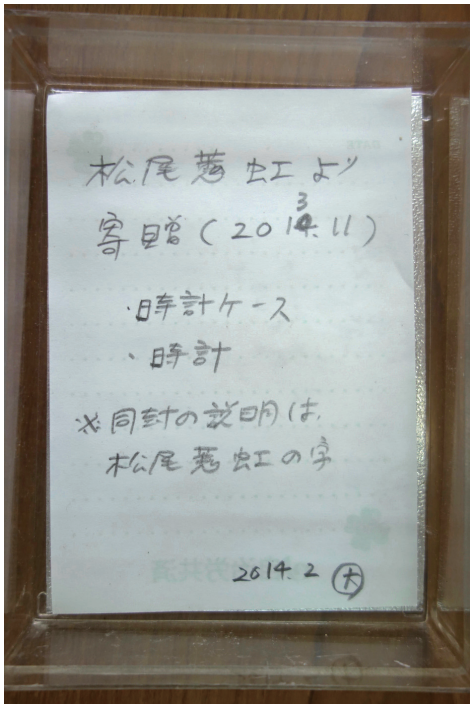 松尾蕙虹より
寄贈(2013.11)
・時計ケース
・時計
※同封の説明は、
松尾蕙虹の字
2014.2 大